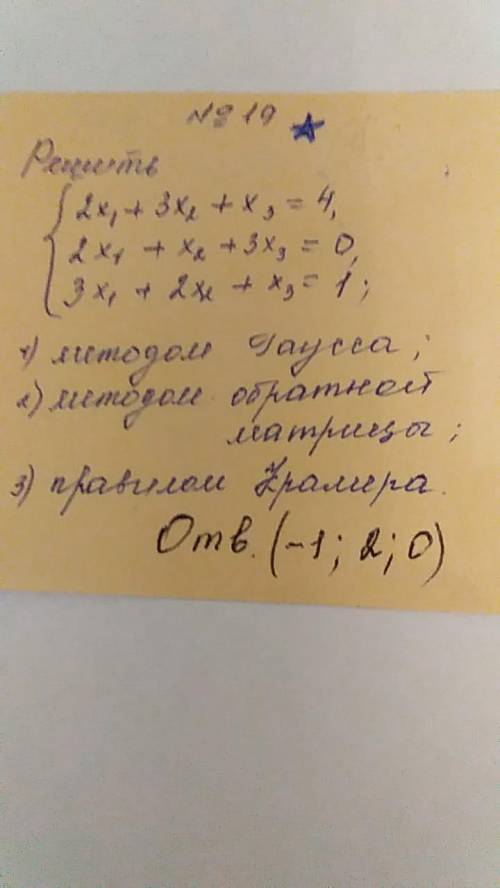 № 819
Решить
2x₁ + 3x₂ + x₃ = 4,
2x₁ + x₂ + 3x₃ = 0,
3x₁ + 2x₂ + x₃ = 1;
1) методом Гаусса;
2) методом обратной
матрицы;
3) правилом Крамера.
Отв. (-1; 2; 0)